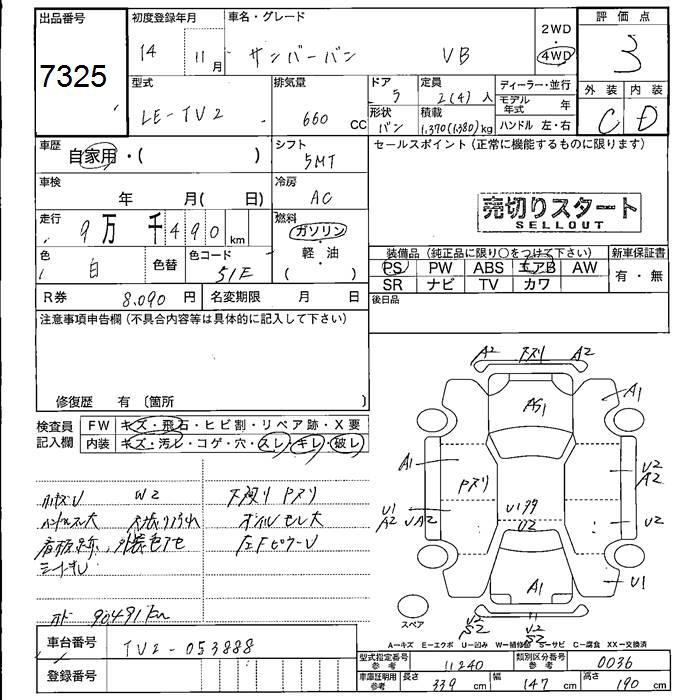 出品番号
7325
初度登録年月
14 11 月
車名・グレード
サンバーバン VB
2WD
4WD
評価点
3
外装 内装
C D
型式
LE-TV2
排気量
660 CC
ドア
5
形状
バン
定員
2(4) 人
積載
1,370(1,380) kg
ディーラー・並行
モデル年式 年
ハンドル 左・右
車歴
自家用・( )
シフト
5MT
セールスポイント(正常に機能するものに限ります)
売切りスタート
SELLOUT
車検
年 月( 日)
冷房
AC
走行
9万 千490 km
燃料
ガソリン
軽・油
( )
色
白
色替
色コード
51E
装備品(純正品に限り○をつけて下さい)
PS PW ABS エアB AW
SR ナビ TV カワ
新車保証書
有・無
R券 8.090 円
名変期限 月 日
後日品
注意事項申告欄(不具合内容等は具体的に記入して下さい)
修復歴 有 〔箇所 〕
検査員記入欄
FW キズ・飛石・ヒビ割・リペア跡・X要
内装 キズ・汚レ・コゲ・穴・スレ・キレ・破レ
W2
下廻り Pスリ
ハンドルスレ大
オイルモレ大
看板跡、外装色アセ
左FピラーU
オド 90491km
A2 下スリ A2
A1
AS1
A1
Pスリ
U2
A2
U1
A2
UA2
U2
U2
A1
U1
スペア
U2
S2
U2
S2
A−キズ E−エクボ U−凹み W−補修跡 S−サビ C−腐食 XX−交換済
車台番号 TV2-053888
登録番号
型式指定番号 参考 11240
類別区分番号 参考 0036
車庫証明用 参考
長さ 339 cm
幅 147 cm
高さ 190 cm